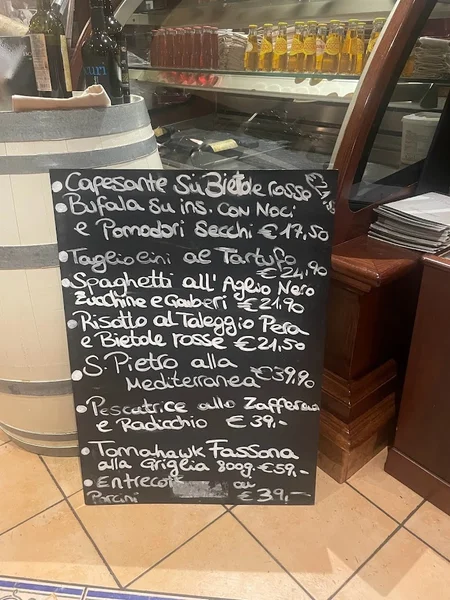 • Capesante Su Bietole rosse
• Bufala su ins. con Noci
e Pomodori Secchi €17,50
• Tagliolini al Tartufo
€24,90
• Spaghetti all' Aglio Nero
Zucchine e Gamberi €21.90
• Risotto al Taleggio Pera
e Bietole rosse €21,50
• S. Pietro alla
Mediterranea €39,90
• Pescatrice allo Zafferano
e Radicchio €39,-
• Tomahawk Fassona
alla Griglia 800g. €59,-
• Entrecote ai
Porcini €39,-